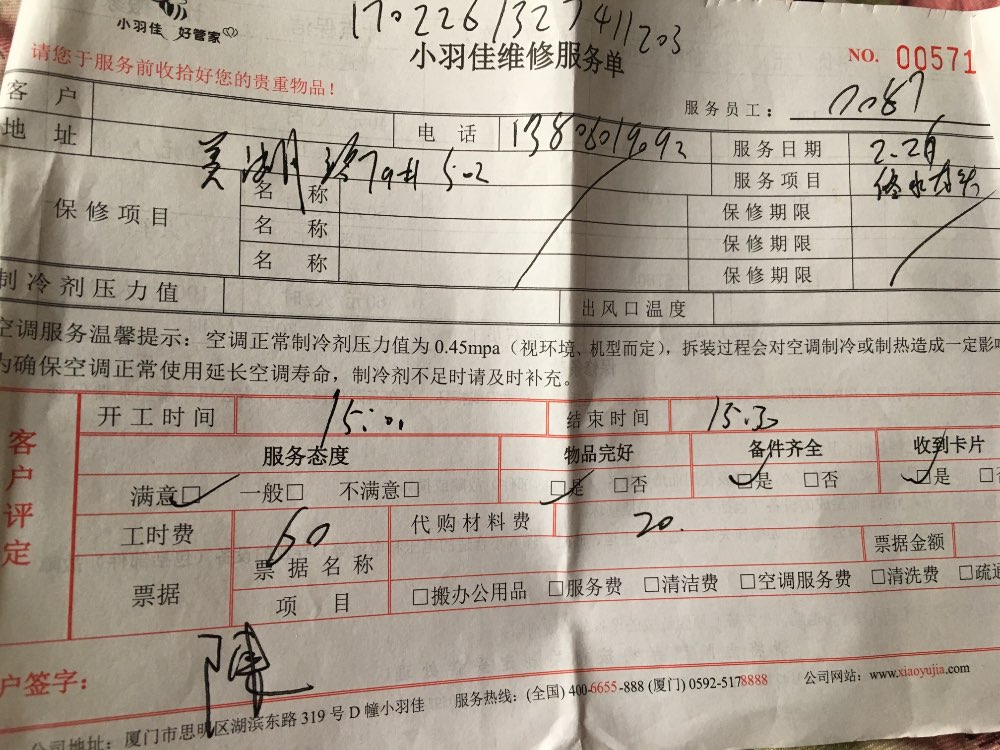 小羽佳 好管家
170226132741203
小羽佳维修服务单
NO. 00571
请您于服务前收拾好您的贵重物品！
服务员工： 7087
客 户
电 话 13806019092 服务日期 2.26
地 址 美湖路79# 502 服务项目
保修项目 名 称 保修期限
名 称 保修期限
名 称 保修期限
制冷剂压力值 出风口温度
空调服务温馨提示：空调正常制冷剂压力值为 0.45mpa（视环境、机型而定），拆装过程会对空调制冷或制热造成一定影响
为确保空调正常使用延长空调寿命，制冷剂不足时请及时补充。
客户评定
开工时间 15:00 结束时间 15:30
服务态度 物品完好 备件齐全 收到卡片
满意□ 一般□ 不满意□ □是 □否 □是 □否 □是 □否
工时费 60 代购材料费 20.
票据 票据名称 票据金额
项 目 □搬办公用品 □服务费 □清洁费 □空调服务费 □清洗费 □疏通
户签字： 陈
公司地址：厦门市思明区湖滨东路 319 号 D 幢小羽佳 服务热线：(全国) 400-6655-888 (厦门) 0592-5178888 公司网站：www.xiaoyujia.com